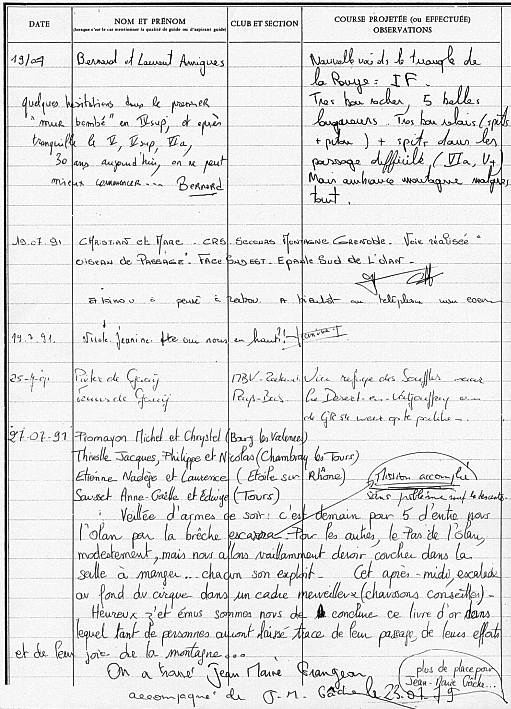 DATE
NOM ET PRÉNOM
(lorsque c'est le cas mentionner la qualité de guide ou d'aspirant guide)
CLUB ET SECTION
COURSE PROJETÉE (ou EFFECTUÉE)
OBSERVATIONS
19/07 Bernard et Laurent Amigues
Nouvelle voie de le triangle de
la Rouye : IF.
Tres bon rocher, 5 belles
longueurs. Tres bon relais (spits
+ piton) + spits dans les
passage difficile (VIa, V+)
Mais ambiance montagne malgres
tout.
quelques hesitations dans le premier
"mur bombé" en IV sup, et après
tranquille le V, V sup, VIa,
30 ans aujourd'hui, on ne peut
mieux commencer... BERNARD
19.07.91 CHRISTIAN et MARC. CRS. SECOURS MONTAGNE GRENOBLE. Voie réalisée "
OISEAU de PASSAGE". FACE SUD EST. Epaule Sud de L'OLAN.
à pensé à A bientot au téléphone mon coeur
19.7.91. Nicole, Jeanine qui nous en haut!!
25-7-91 Pieter de
de
Pays-Bas
Via refuge des Souffles
Le Desert-en-Valjouffrey
de GR 54
27-07-91 Promayon Michel et Chrystel (Bourg les Valence)
Thivelle Jacques, Philippe et Nicolas (Chambray les Tours)
Etienne Nadège et Laurence (Etoile sur Rhône)
Sausset Anne-Gaëlle et Edwige (Tours)
Mission accomplie
sans problème sauf la descente.
Veillée d'armes ce soir : c'est demain pour 5 d'entre nous
l'Olan par la brêche escarra. Pour les autres, le Pas de l'Olan,
modestement, mais nous allons vaillamment devoir coucher dans la
salle à manger... chacun son exploit - Cet après-midi, escalade
au fond du cirque dans un cadre merveilleux (chaussons conseillés) -
Heureux z'et émus sommes nous de conclure ce livre d'or dans
lequel tant de personnes auront laissé trace de leur passage, de leurs efforts
et de leur joie de la montagne...
On a trouvé Jean Marie Grangeon
accompagné de J. M. Gâche le 23.07.79
plus de place pour
Jean-Marie Gâche...